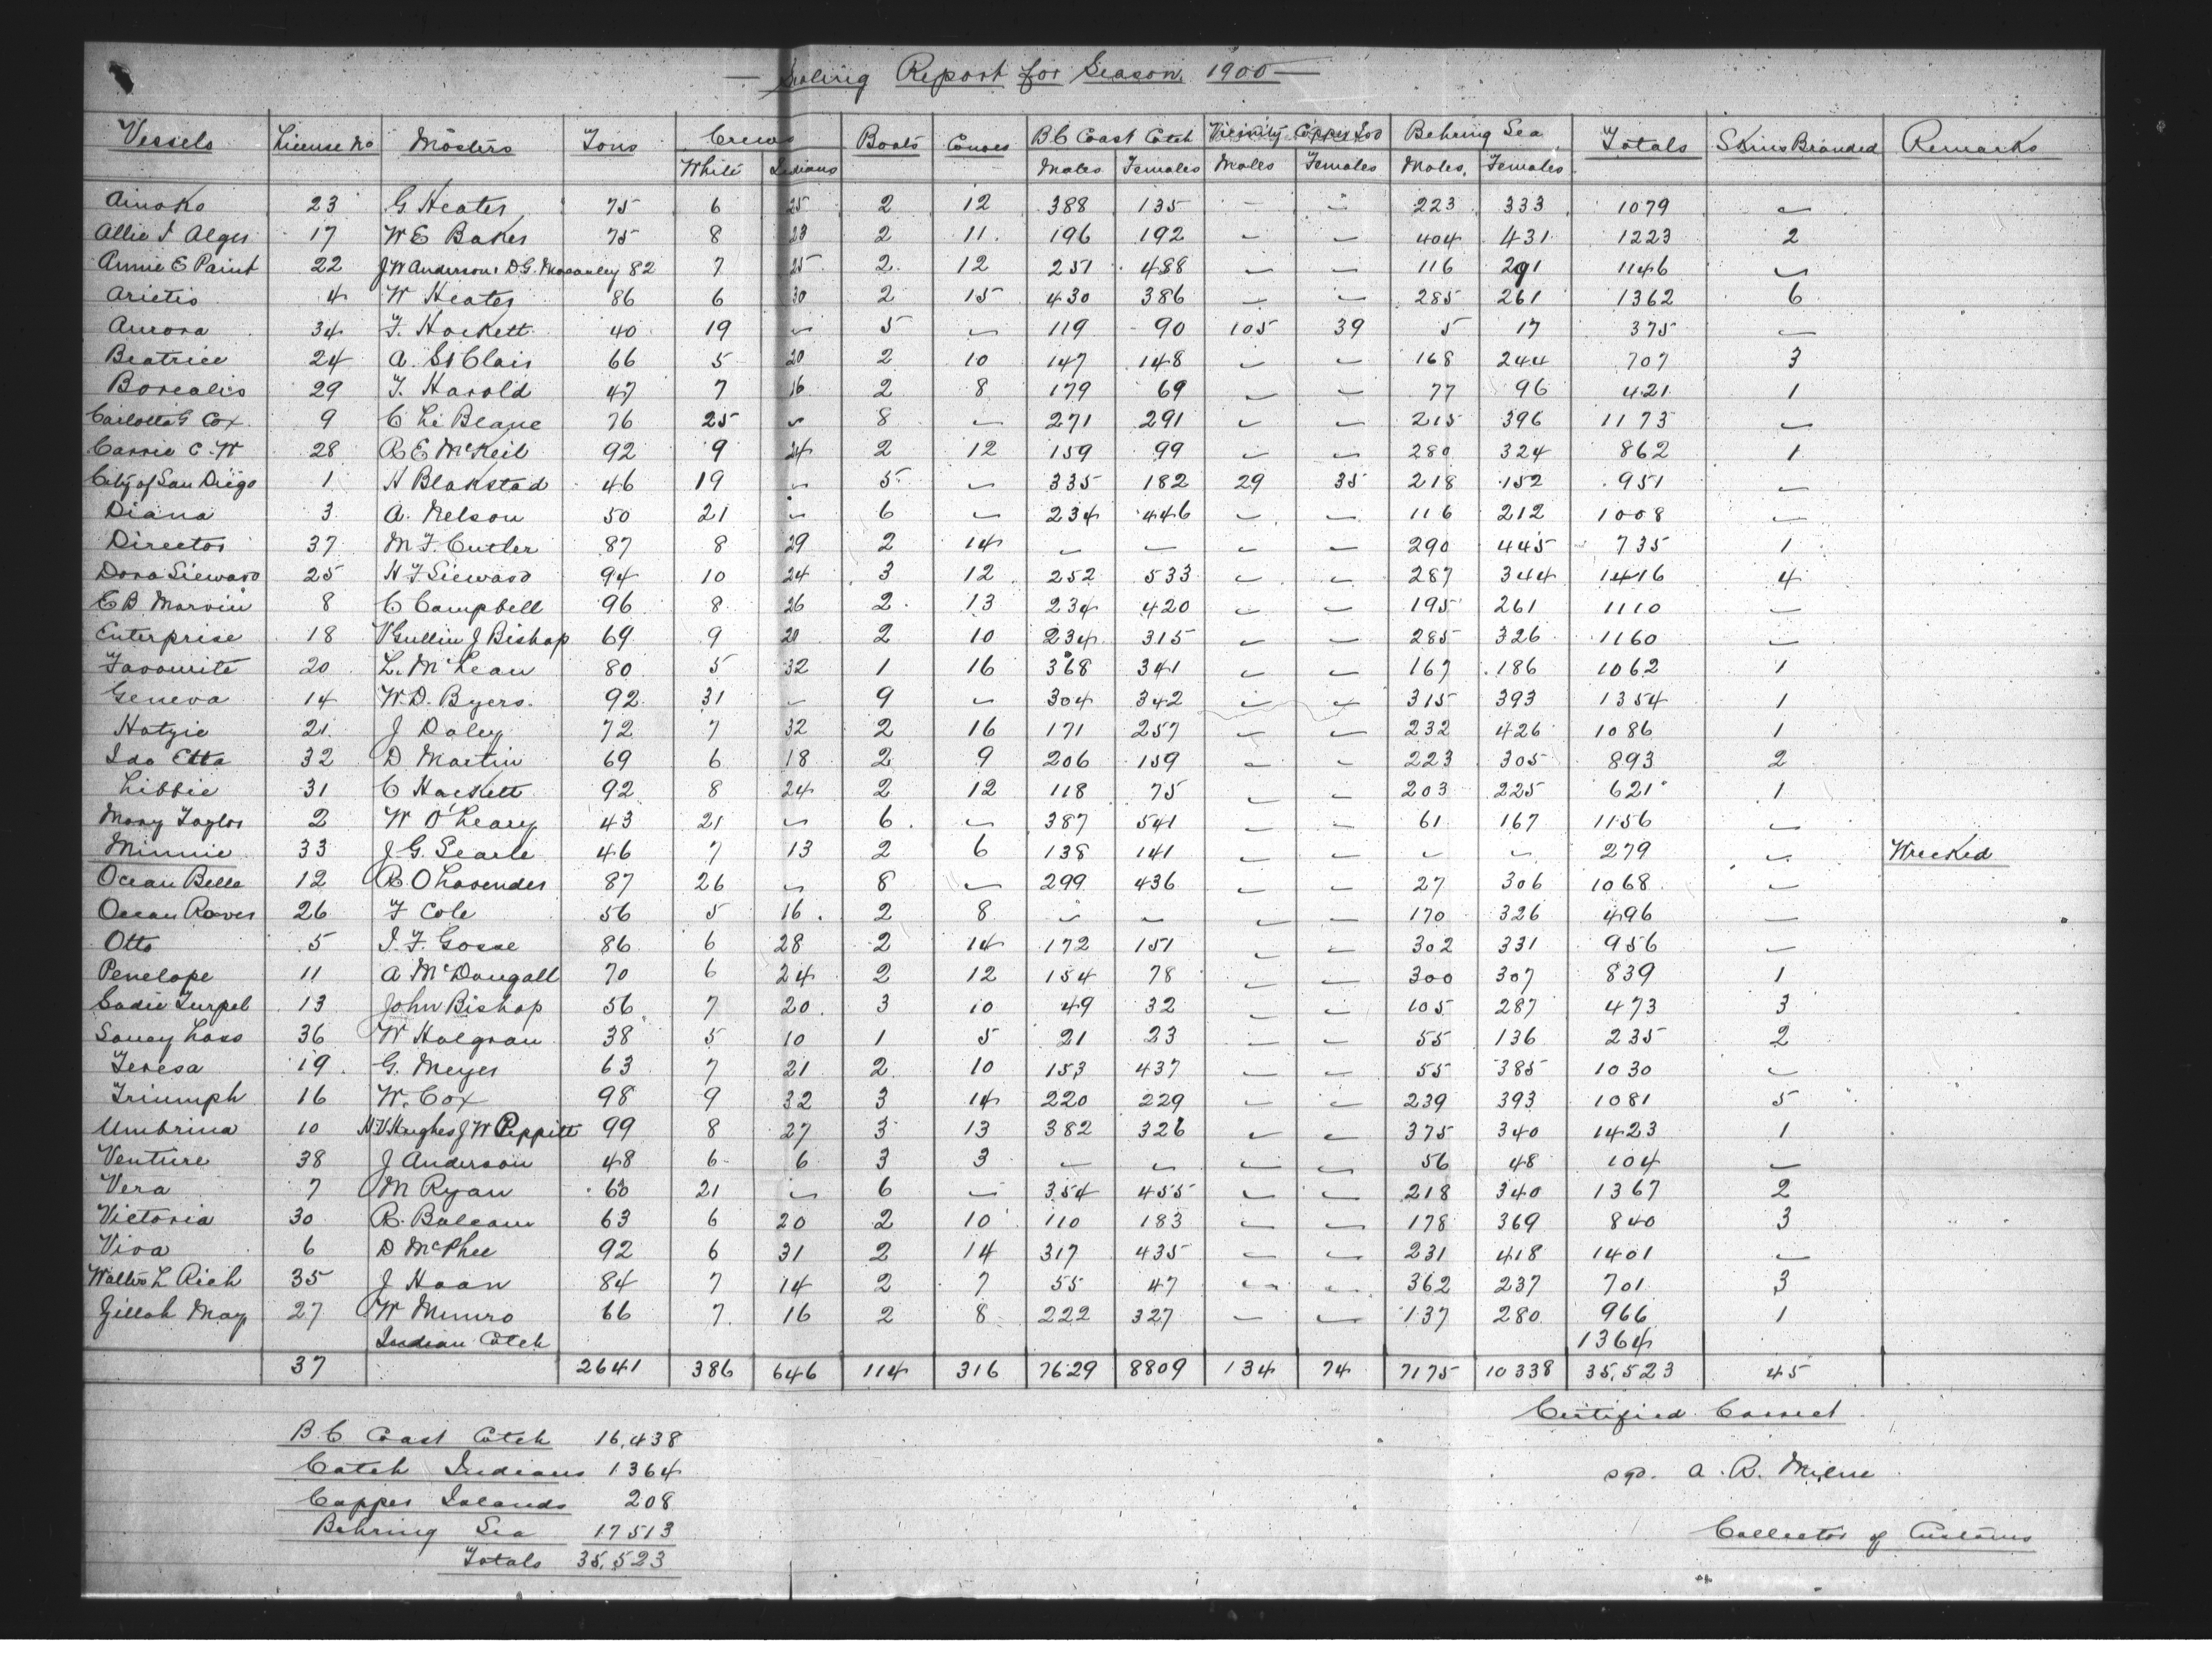 — Sealing Report for Season 1900 —
Vessels License No Masters Tons Crews Boats Canoes B C Coast Catch Vicinity Copper Isd Behring Sea Totals Skins Branded Remarks
White Indians Males Females Males Females Males Females
Ainoko 23 G. Heater 75 6 25 2 12 388 135 – – 223 333 1079 –
Allie I Alger 17 W E Baker 75 8 23 2 11 196 192 – – 404 431 1223 2
Annie E Paint 22 J W Anderson. D.G. Macauley 82 7 25 2 12 251 488 – – 116 291 1146 –
Arietis 4 W Heater 86 6 30 2 15 430 386 – – 285 261 1362 6
Aurora 34 F. Hackett 40 19 – 5 – 119 90 105 39 5 17 375 –
Beatrice 24 A. St Clair 66 5 20 2 10 147 148 – – 168 244 707 3
Borealis 29 F. Harold 47 7 16 2 8 179 69 – – 77 96 421 1
Carlotta G Cox 9 C Le Blanc 76 25 – 8 – 271 291 – – 215 396 1173 –
Carrie C. W 28 R E McKeil 92 9 24 2 12 159 99 – – 280 324 862 1
City of San Diego 1 H Blakstad 46 19 – 5 – 335 182 29 35 218 152 951 –
Diana 3 A. Nelson 50 21 – 6 – 234 446 – – 116 212 1008 –
Director 37 M F. Cutler 87 8 29 2 14 – – – – 290 445 735 1
Dora Sieward 25 H F Sieward 94 10 24 3 12 252 533 – – 287 344 1416 4
E B. Marvin 8 C Campbell 96 8 26 2 13 234 420 – – 195 261 1110 –
Enterprise 18 V Gullin J Bishop 69 9 20 2 10 234 315 – – 285 326 1160 –
Favourite 20 L. McLean 80 5 32 1 16 368 341 – – 167 186 1062 1
Geneva 14 W. D. Byers 92 31 – 9 – 304 342 – – 315 393 1354 1
Hatzic 21 J Daley 72 7 32 2 16 171 257 – – 232 426 1086 1
Ida Etta 32 D Martin 69 6 18 2 9 206 159 – – 223 305 893 2
Libbie 31 C Hackett 92 8 24 2 12 118 75 – – 203 225 621 1
Mary Taylor 2 W O'Leary 43 21 – 6 – 387 541 – – 61 167 1156 –
Minnie 33 J. G. Searle 46 7 13 2 6 138 141 – – – – 279 – Wrecked
Ocean Belle 12 R. O Lavender 87 26 – 8 – 299 436 – – 27 306 1068 –
Ocean Rover 26 F Cole 56 5 16 2 8 – – – – 170 326 496 –
Otto 5 I. F. Gosse 86 6 28 2 14 172 151 – – 302 331 956 –
Penelope 11 A McDougall 70 6 24 2 12 154 78 – – 300 307 839 1
Sadie Turpel 13 John Bishop 56 7 20 3 10 49 32 – – 105 287 473 3
Saucy Lass 36 W Halgran 38 5 10 1 5 21 23 – – 55 136 235 2
Teresa 19 G. Meyer 63 7 21 2 10 153 437 – – 55 385 1030 –
Triumph 16 W. Cox 98 9 32 3 14 220 229 – – 239 393 1081 5
Umbrina 10 H V Hughes J W Peppitt 99 8 27 3 13 382 326 – – 375 340 1423 1
Venture 38 J Anderson 48 6 6 3 3 – – – – 56 48 104 –
Vera 7 M Ryan 60 21 – 6 – 354 455 – – 218 340 1367 2
Victoria 30 R. Balcam 63 6 20 2 10 110 183 – – 178 369 840 3
Viva 6 D McPhee 92 6 31 2 14 317 435 – – 231 418 1401 –
Walter L Rich 35 J Haan 84 7 14 2 7 55 47 – – 362 237 701 3
Zillah May 27 W Munro 66 7 16 2 8 222 327 – – 137 280 966 1
Indian Catch 1364
37 2641 386 646 114 316 7629 8809 134 74 7175 10338 35,523 45
Certified Correct
B. C Coast Catch 16,438
Catch Indians 1364
sgd. A. R. Milne
Copper Islands 208
Behring Sea 17513
Collector of Customs
Totals 35,523